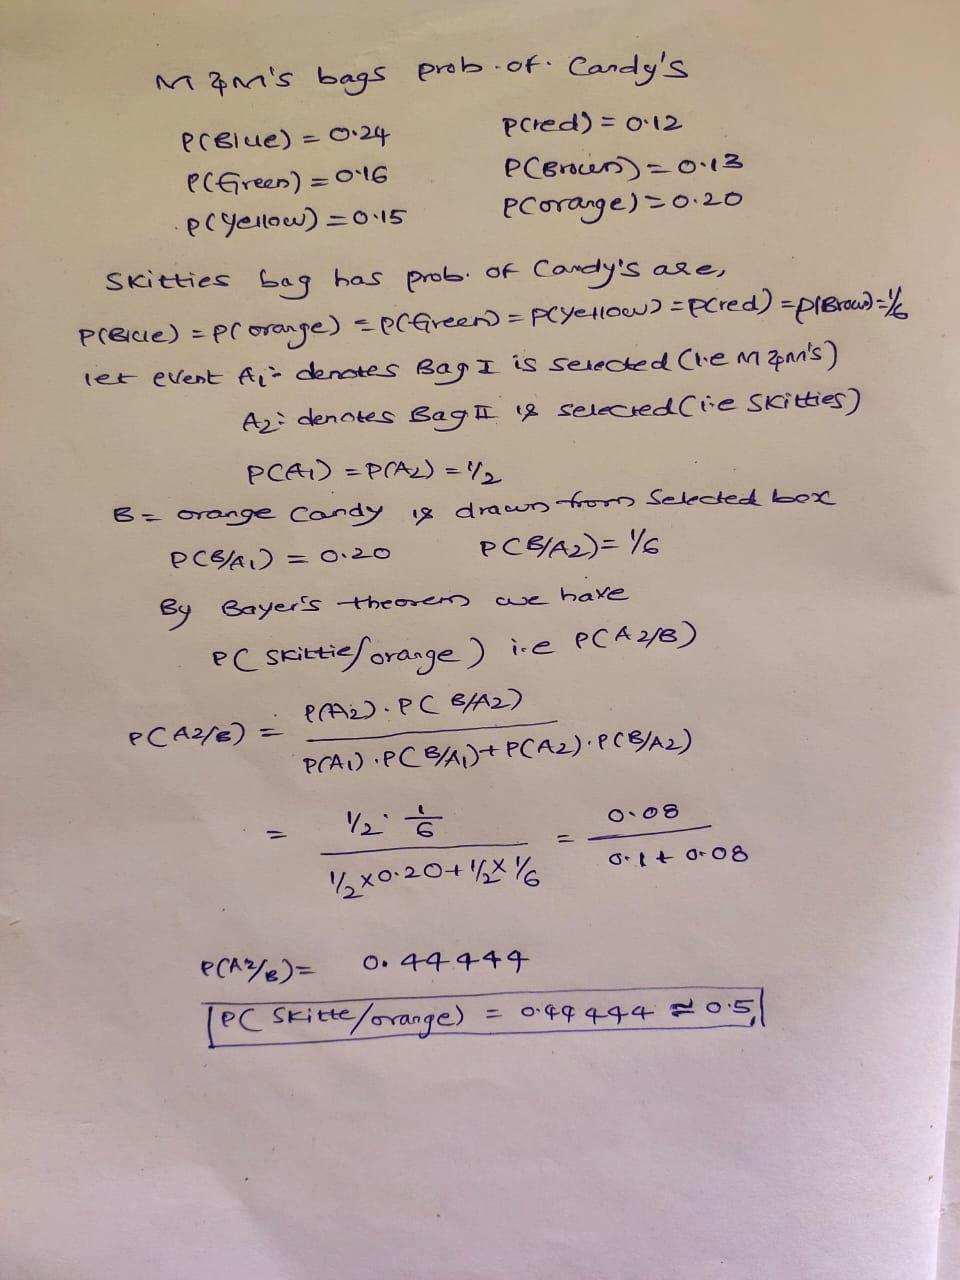 M&M's bags prob. of. Candy's
P(Blue) = 0.24
P(red) = 0.12
P(Green) = 0.16
P(Brown) = 0.13
P(Yellow) = 0.15
P(orange) = 0.20
Skitties bag has prob. of Candy's are,
P(Blue) = P(orange) = P(Green) = P(Yellow) = P(red) = P(Brown) = 1/6
let event A1:- denotes Bag I is selected (i.e M&M's)
A2: denotes Bag II is selected (i.e Skitties)
P(A1) = P(A2) = 1/2
B = orange Candy is drawn from selected box
P(B/A1) = 0.20 P(B/A2) = 1/6
By Bayer's theorem we have
P(Skittie/orange) i.e P(A2/B)
P(A2/B) = P(A2).P(B/A2) / P(A1).P(B/A1)+P(A2).P(B/A2)
= 1/2 . 1/6 / 1/2 x 0.20 + 1/2 x 1/6 = 0.08 / 0.1 + 0.08
P(A2/B) = 0.44444
P(Skitte/orange) = 0.44444 ≈ 0.5